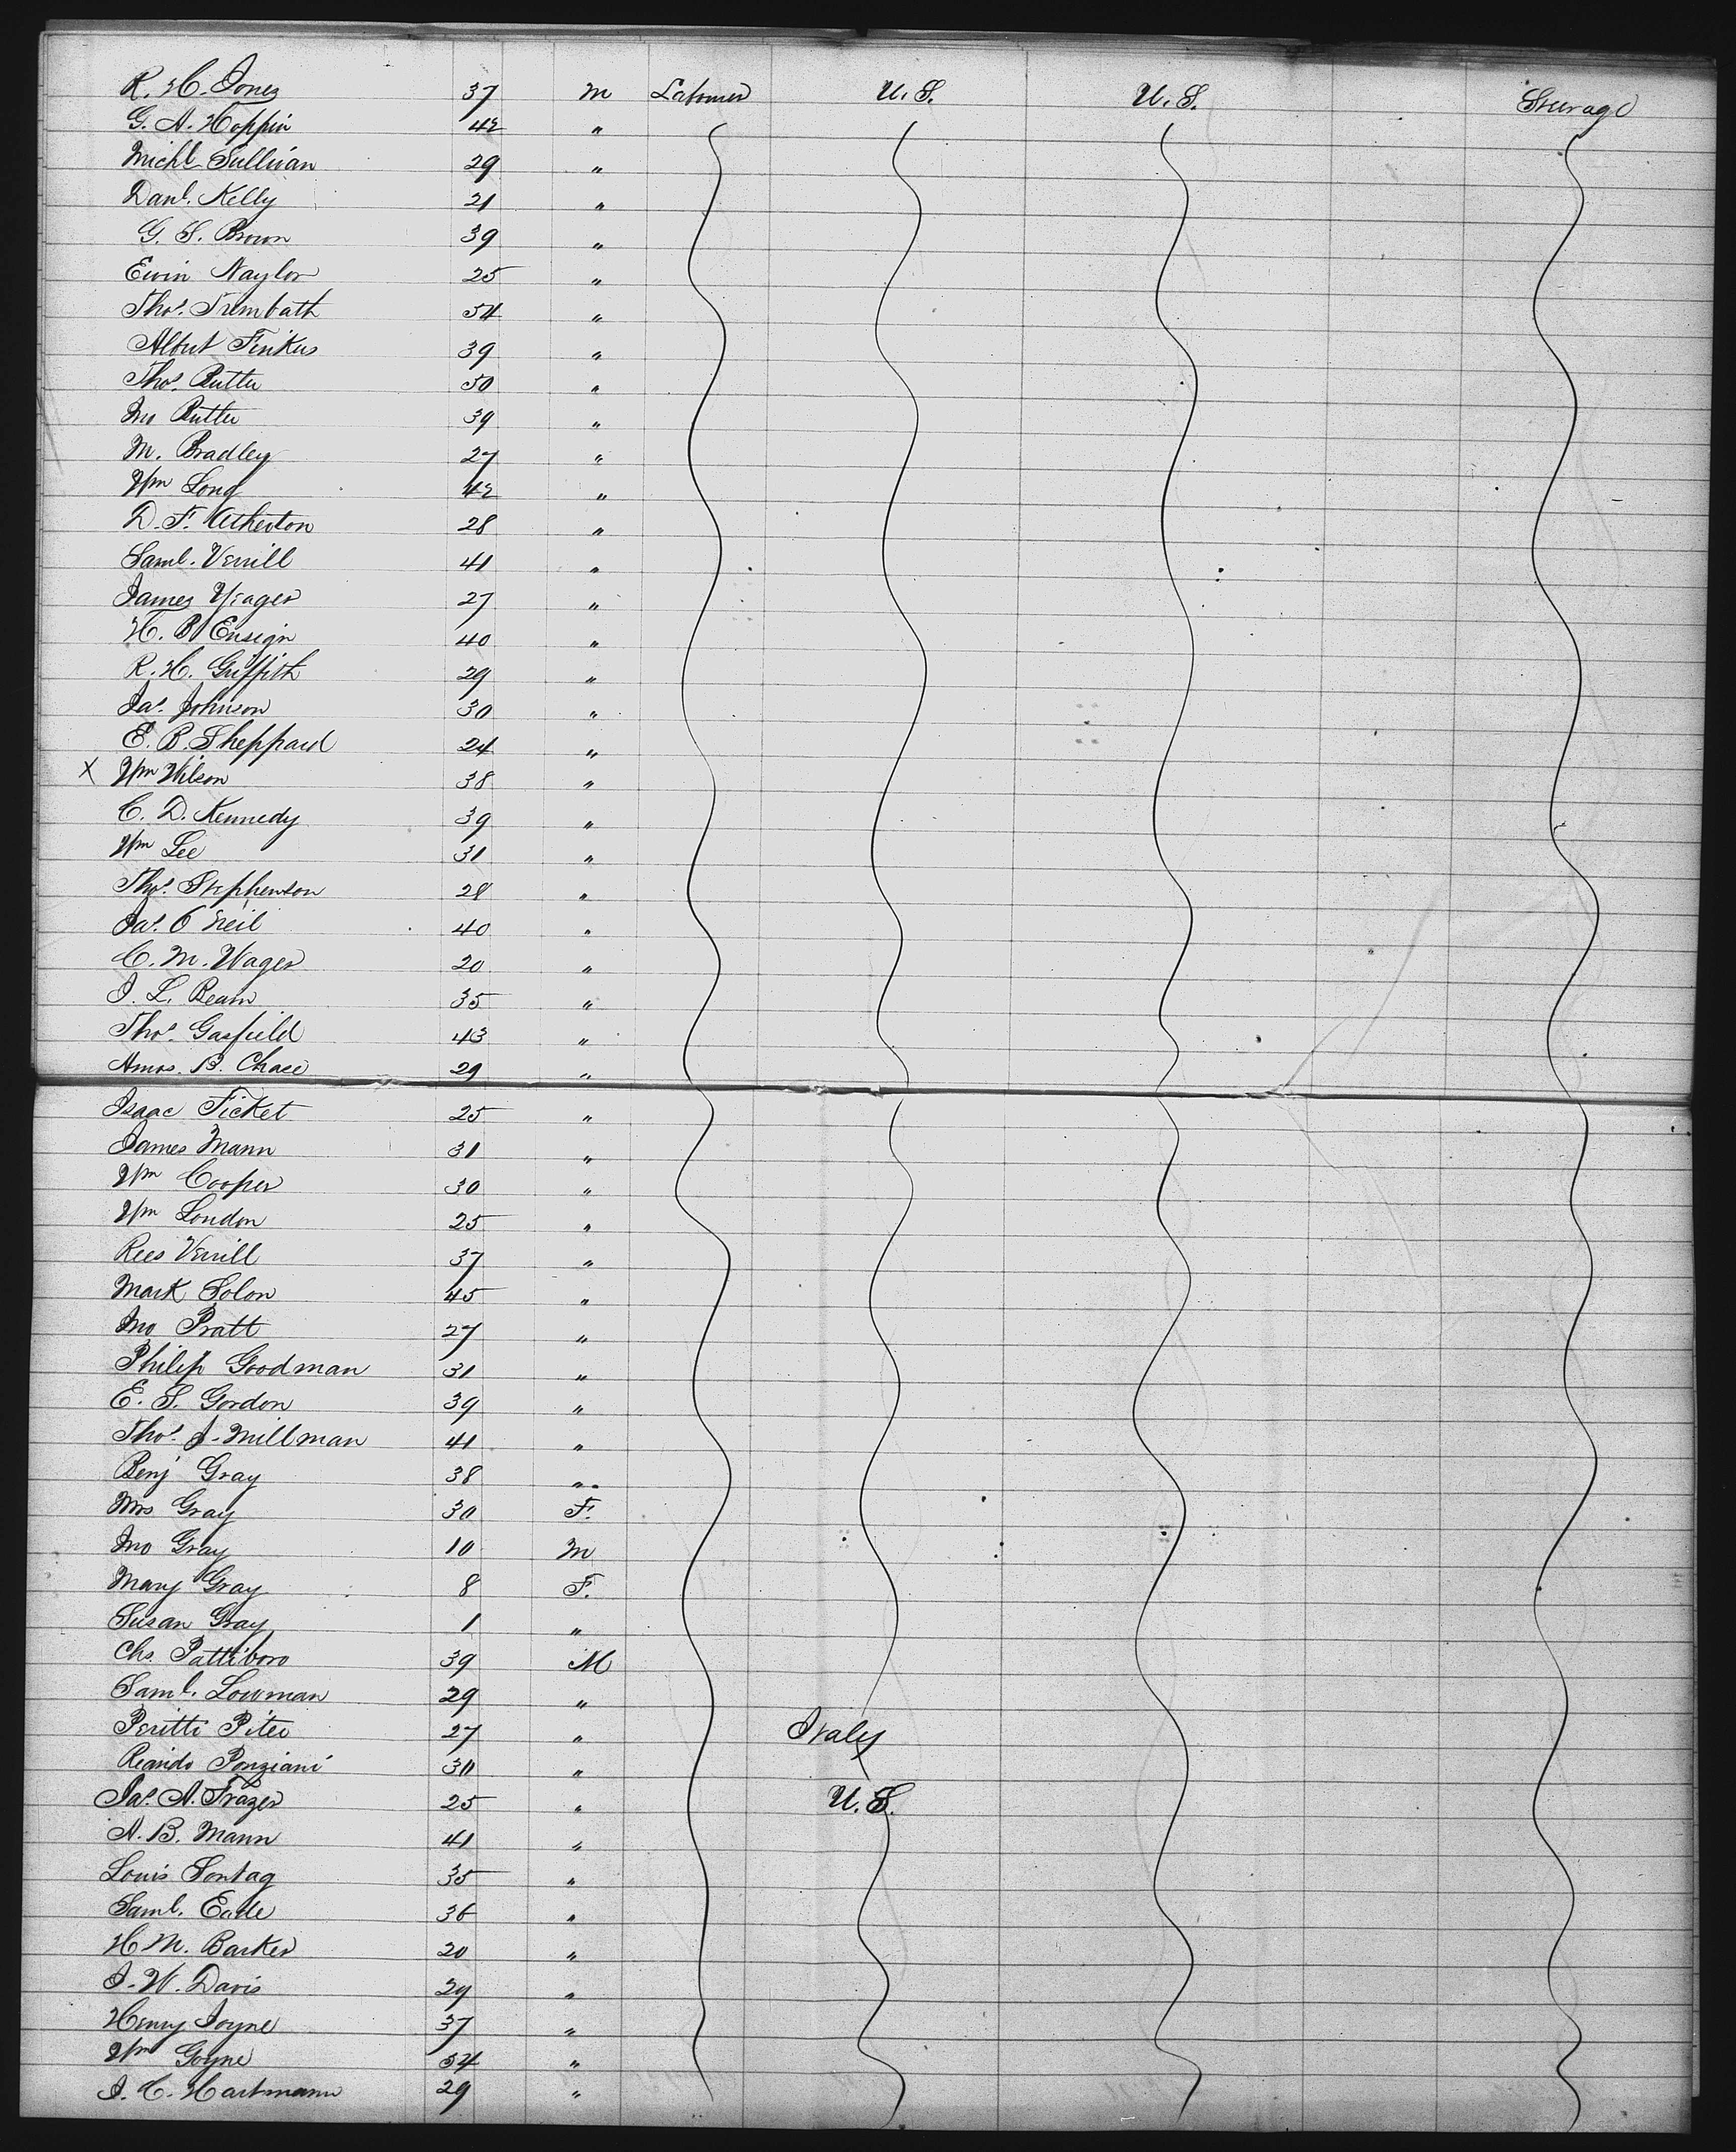 R. H. Jones 37 M Laborer U. S. U. S. Steerage
G. A. Hoppin 42 "
Michl Sullivan 29 "
Danl. Kelly 21 "
G. S. Brown 39 "
Ewin Naylor 25 "
Thos. Trembath 54 "
Albert Finkus 39 "
Thos. Rutter 50 "
Jno Rutter 39 "
M. Bradley 27 "
Wm Long 42 "
D. F. Atherton 28 "
Saml. Verrill 41 "
James Yeager 27 "
H. B. Ensign 40 "
R. H. Griffith 29 "
Jas. Johnson 30 "
E. B. Sheppard 24 "
X Wm Wilson 38 "
C. D. Kennedy 39 "
Wm Lee 31 "
Thos. Stephenson 28 "
Jas. O'Neil 40 "
C. M. Wager 20 "
J. L. Ream 35 "
Thos. Gasfield 43 "
Amos. B. Chace 29 "
Isaac Ticket 25 "
James Mann 31 "
Wm Cooper 30 "
Wm London 25 "
Rees Verrill 37 "
Mark Solon 45 "
Jno Pratt 27 "
Philip Goodman 31 "
E. S. Gordon 39 "
Thos. J. Millman 41 "
Benj Gray 38 "
Mrs Gray 30 F.
Jno Gray 10 M
Mary Gray 8 F.
Susan Gray 1 "
Chs. Pattiboro 39 M
Saml. Lowman 29 "
Peritti Piter 27 " Italy
Ponziani 30 "
Jas. A. Frazer 25 " U. S.
A. B. Mann 41 "
Louis Sontag 35 "
Saml. Earle 36 "
H M. Barker 20 "
J. W. Davis 29 "
Henry Joyne 37 "
Wm Goyne 54 "
J. C. Hartmann 29 "